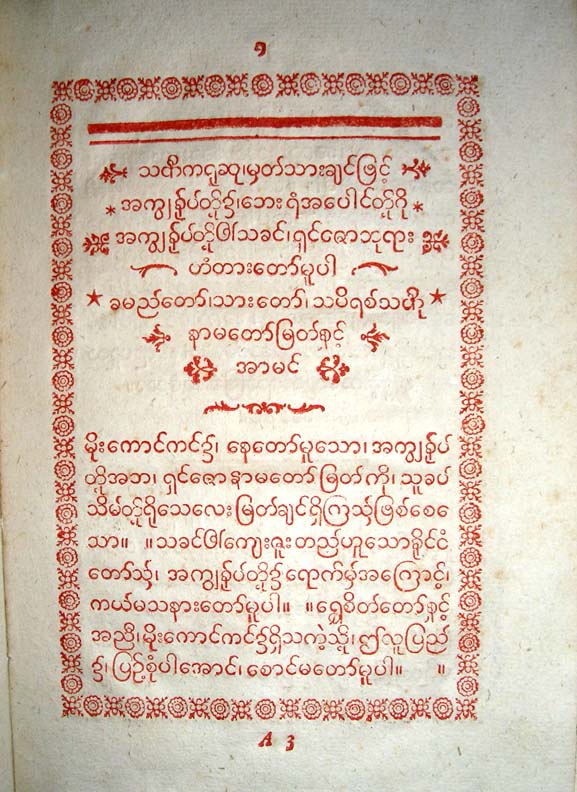 ၅
သင်္တါကရုဆု၊မှတ်သားချင်ဖြင့်
အကျွန်ုပ်တို့၌၊ဘေးရံအပေါင်တို့ဂို
အကျွန်ုပ်တို့၏သခင်၊ရှင်ဇောဘုရား
ဟံတားတော်မူပါ
ခမည်တော်၊သားတော်၊သပိရစ်သင်္တါု
နာမတော်မြတ်နှင့်
အာမင်
မိုးကောင်ကင်၌၊ နေတော်မူသော၊ အကျွန်ုပ်
တို့အဘ၊ ရှင်ဇောနာမတော်မြတ်ကို၊ သူခပ်
သိမ်တို့ရိုသေလေးမြတ်ချင်ရှိကြသ့ုံဖြစ်စေ
သာ။ ။သခင်၏ကျေးဇူးတည်ဟူသောနိုင်ငံ
တော်သို့၊ အကျွန်ုပ်တို့၌ရောက်မ့်အကြောင့်၊
ကယ်မသနားတော်မူပါ။ ။ရွှေစိတ်တော်နှင့်
အညီ၊မိုးကောင်ကင်၌ရှိသကဲ့သို့၊ဤလူပြည်
၌၊ပြဉ်စုံပါအောင်၊စောင်မတော်မူပါ။ ။
A 3